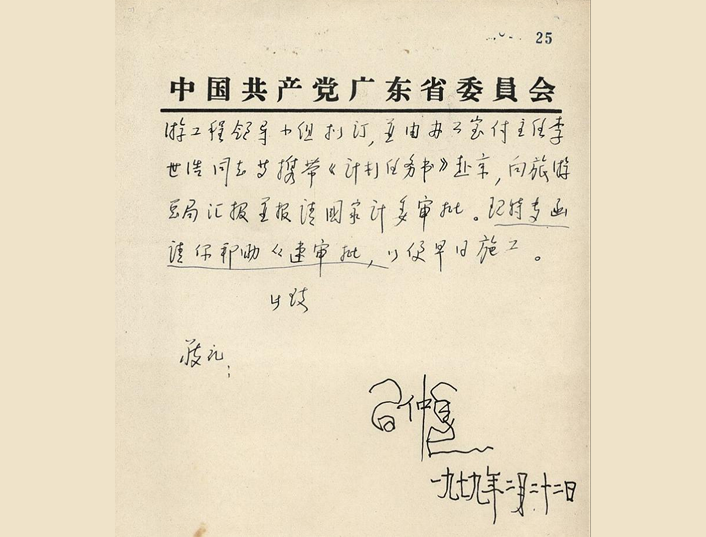 25
中国共产党广东省委員会
游工程领导小组制订，并由办公室付主任李
世浩同志等携带《计划任务书》赴京，向旅游
总局汇报并报请国家计委审批。现特专函
请你帮助，迅速审批，以便早日施工。
此致
敬礼！
习仲勋
一九七九年二月二十二日